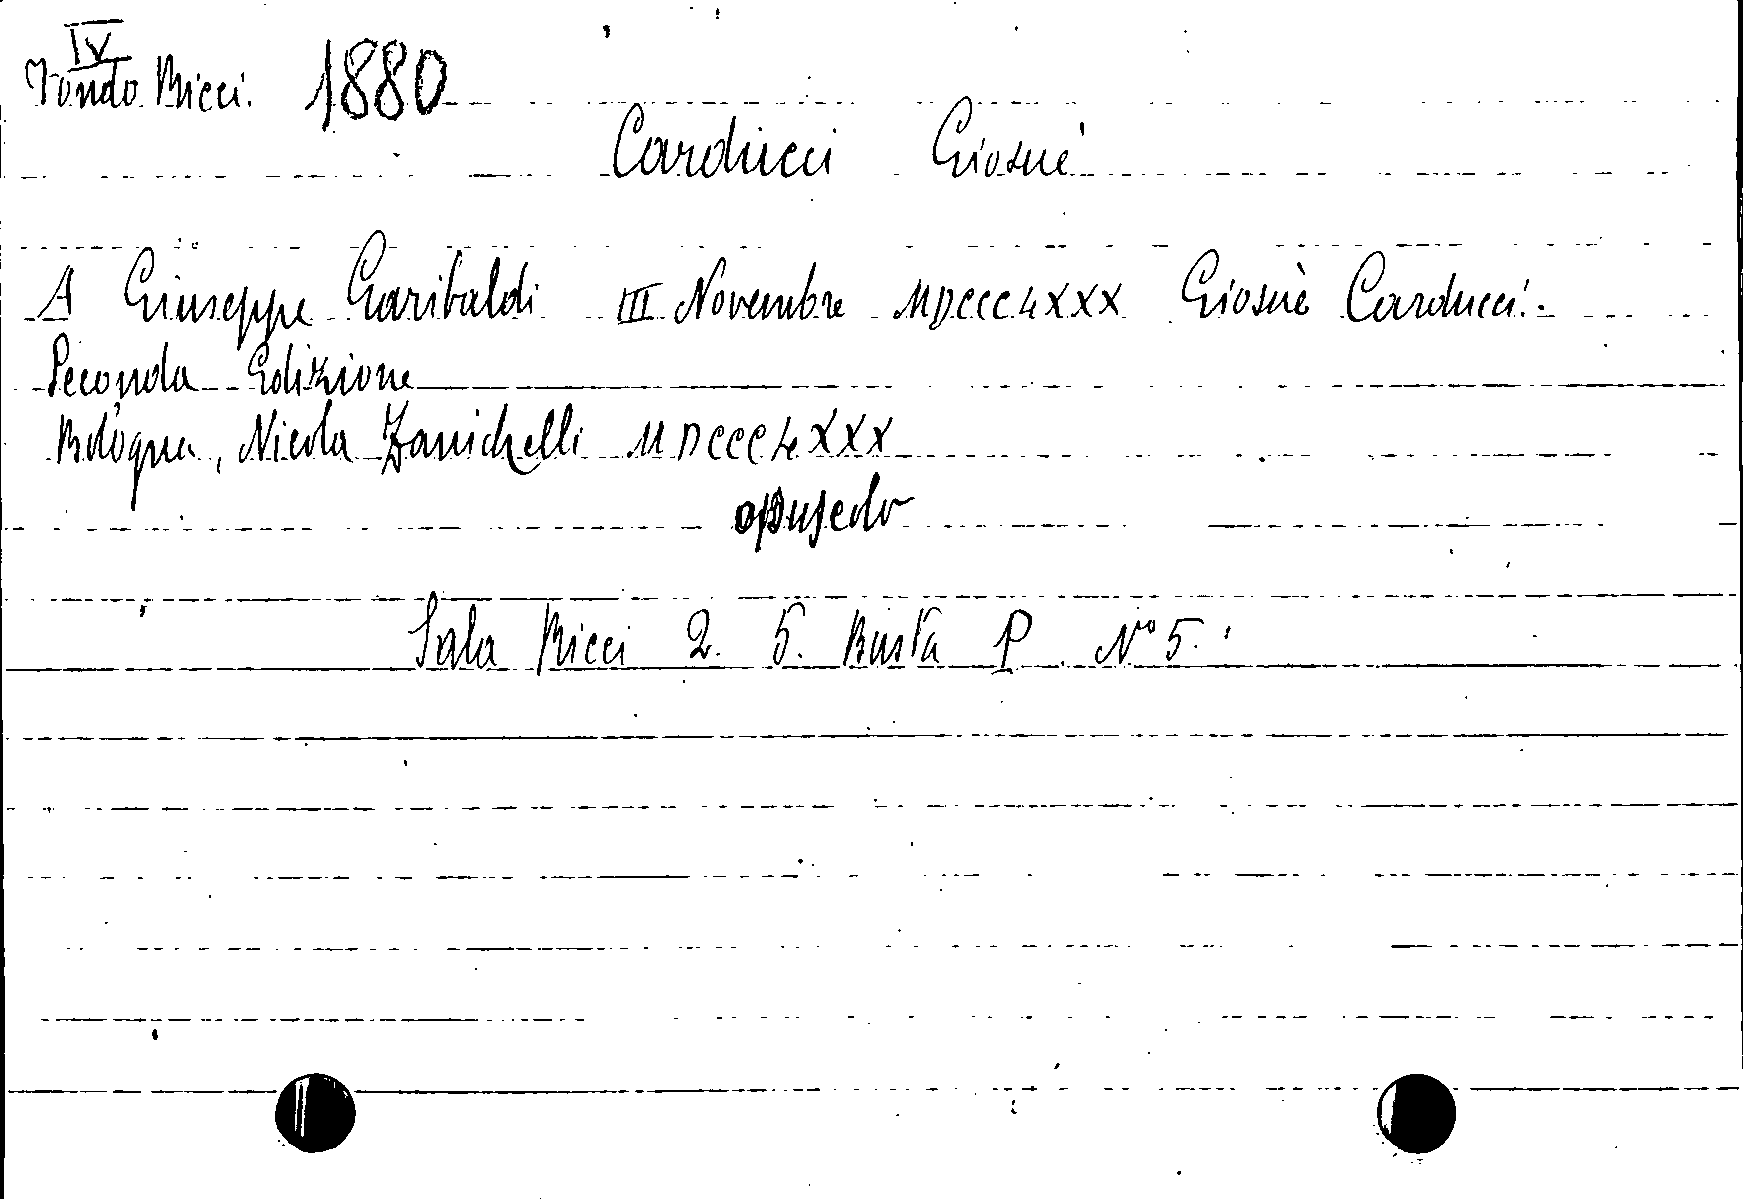 IV
Fondo Ricci. 1880
Carducci Giosuè
A Giuseppe Garibaldi III Novembre MDCCCLXXX Giosuè Carducci.-
Seconda Edizione
Bologna, Nicola Zanichelli MDCCCLXXX
opuscolo
Sala Ricci 2. 5. Busta P N° 5.